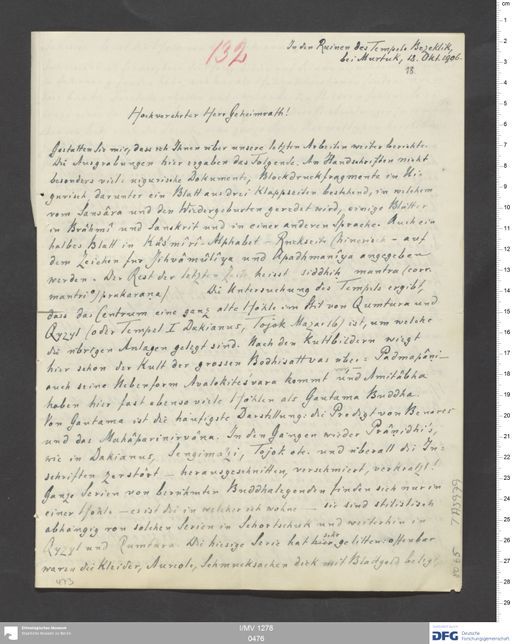 132
In den Ruinen des Tempels Bezeklik,
bei Murtuk, 18. Okt. 1906.
18.
Hochverehrter Herr Geheimrath!
Gestatten Sie mir, dass ich Ihnen über unsere letzten Arbeiten weiter berichte.
Die Ausgrabungen hier ergaben das Folgende. An Handschriften nicht
besonders viel: uigurische Dokumente, Blockdruckfragmente im Ui-
gurisch, darunter ein Blatt aus drei Klappseiten bestehend, in welchem
vom Sansâra und den Wiedergeburten geredet wird, einige Blätter
in Brâhmî und Sanskrit und in einer anderen Sprache. Auch ein
halbes Blatt in Kâśmîrî Alphabet - Rückseite (hinesisch - auf
dem Zeichen für Jihvâmûlîya und Upadhmaniya angegeben
werden. Der Rest der letzten heisst siddhih mantra (corr.
mantri°) prakarana/ Die Untersuchung des Tempels ergibt,
dass das Centrum eine ganz alte Höhle im Stil von Qumtura und
Qyzyl (oder Tempel I Dakianus, Tojok Mazar 16) ist, um welche
die übrigen Anlagen gelegt sind. Nach den Kultbildern wiegt
hier schon der Kult der grossen Bodhisattvas über: Padmapâni -
auch seine Nebenform Avalokiteśvara kommt und Amitâbha
haben hier fast ebenso viele Höhlen als Gautama Buddha.
Von Gautama ist die häufigste Darstellung: die Predigt von Benares
und das Mahâparinirvâna. In den Gängen wieder Pranidhi's,
wie in Dakianus, Sengimäzi, Tojok etc. und überall die In-
schriften zerstört - herausgeschnitten, verschmiert, verkratzt!
Ganze Serien von berühmten Buddhalegenden finden sich nur in
einer Höhle - es ist die in welcher ich wohne - sie sind stilistisch
abhängig von solchen Serien in Schortschuk und weiterhin in
Qyzyl und Qumtura. Die hiesige Serie hat sehr gelitten: offenbar
waren die Kleider, Aureole, Schmucksachen dick mit Blattgold belegt,
473
I/MV 1278
0476
Ethnologisches Museum
Staatliche Museen zu Berlin
DFG
Deutsche
Forschungsgemeinschaft